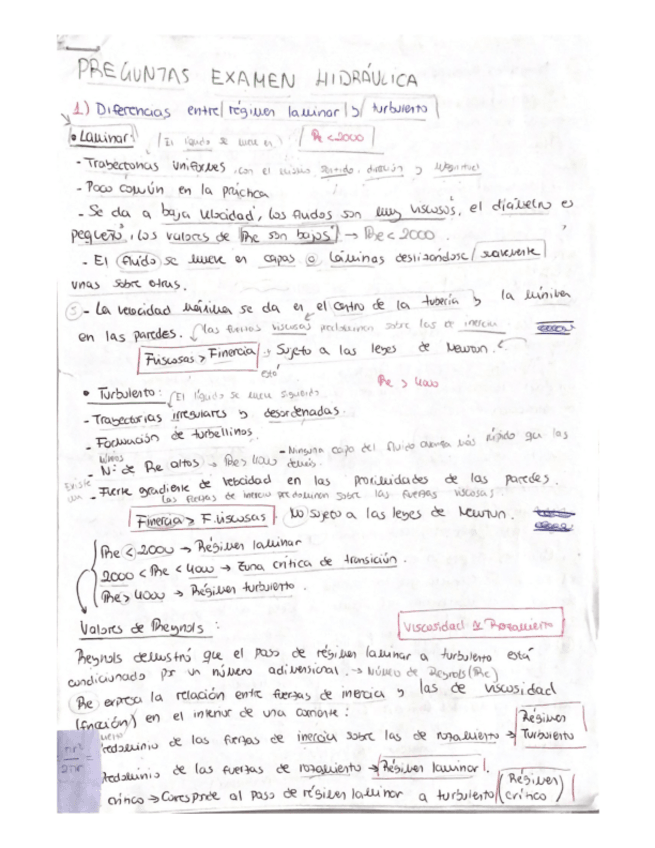 PREGUNTAS EXAMEN HIDRÁULICA
1) Diferencias entre régimen laminar y turbulento
• Laminar: (El líquido se mueve en) Re < 2000
- Trayectorias uniformes, con el mismo sentido, dirección y
- Poco común en la práctica
- Se da a baja velocidad, los fluidos son muy viscosos, el diámetro es
pequeño, los valores de Re son bajos → Re < 2000.
- El fluido se mueve en capas o láminas deslizándose suavemente
unas sobre otras.
- La velocidad máxima se da en el centro de la tubería y la mínima
en las paredes. (las fuerzas viscosas predominan sobre las de inercia
Fviscosas > Finercia → Sujeto a las leyes de Newton.
está
Re > 4000
• Turbulento: (El líquido se mueve siguiendo
- Trayectorias irregulares y desordenadas.
- Formación de turbellinos.
- Ninguna capa del fluido avanza más rápido que las
demás.
- N: de Re altos → Re > 4000
Existe un
- Fuerte gradiente de velocidad en las proximidades de las paredes.
Las fuerzas de inercia predominan sobre las fuerzas viscosas.
Finercia > F.viscosas No sujeto a las leyes de Newton.
Re < 2000 → Régimen laminar
2000 < Re < 4000 → Zona crítica de transición.
Re > 4000 → Régimen turbulento.
Valores de Reynols:
Viscosidad ≈ Rozamiento
Reynols demostró que el paso de régimen laminar a turbulento está
condicionado por un número adimensional. → Número de Reynols (Re)
Re expresa la relación entre fuerzas de inercia y las de viscosidad
(fricción) en el interior de una corriente:
redominio de las fuerzas de inercia sobre las de rozamiento → Régimen Turbulento
redominio de las fuerzas de rozamiento → Régimen laminar.
crítico → Corresponde al paso de régimen laminar a turbulento (Régimen crítico)